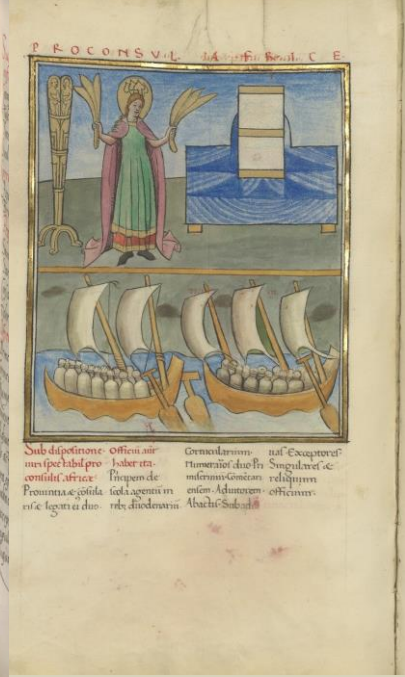 PROCONSUL AFRICE
Sub dispositione
uiri spectabil pro
consulis africae
Prouintia & cōsula
ris & legati ei duo
Officiū aūt
habet ita.
Principem de
scola agentiū in
reb; duodenariū
Cornicularium.
Numerarios duo Pri
ensem. Adiutorem
Abactis. Subad
uas. Exceptores
Singulares &
reliquum
officium.